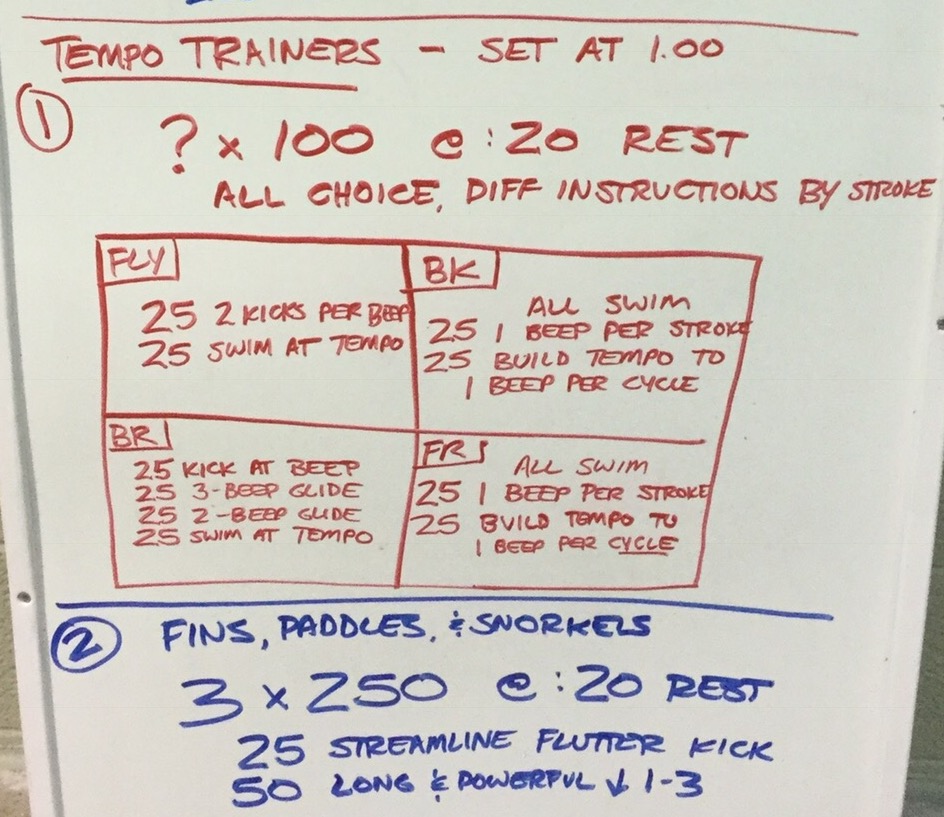 TEMPO TRAINERS - SET AT 1.00
① ? x 100 @ :20 REST
ALL CHOICE, DIFF INSTRUCTIONS BY STROKE
FLY
25 2 KICKS PER BEEP
25 SWIM AT TEMPO
BK
ALL SWIM
25 1 BEEP PER STROKE
25 BUILD TEMPO TO
1 BEEP PER CYCLE
BR
25 KICK AT BEEP
25 3-BEEP GLIDE
25 2-BEEP GLIDE
25 SWIM AT TEMPO
FR
ALL SWIM
25 1 BEEP PER STROKE
25 BUILD TEMPO TO
1 BEEP PER CYCLE
② FINS, PADDLES, & SNORKELS
3 x 250 @ :20 REST
25 STREAMLINE FLUTTER KICK
50 LONG & POWERFUL ↓ 1-3